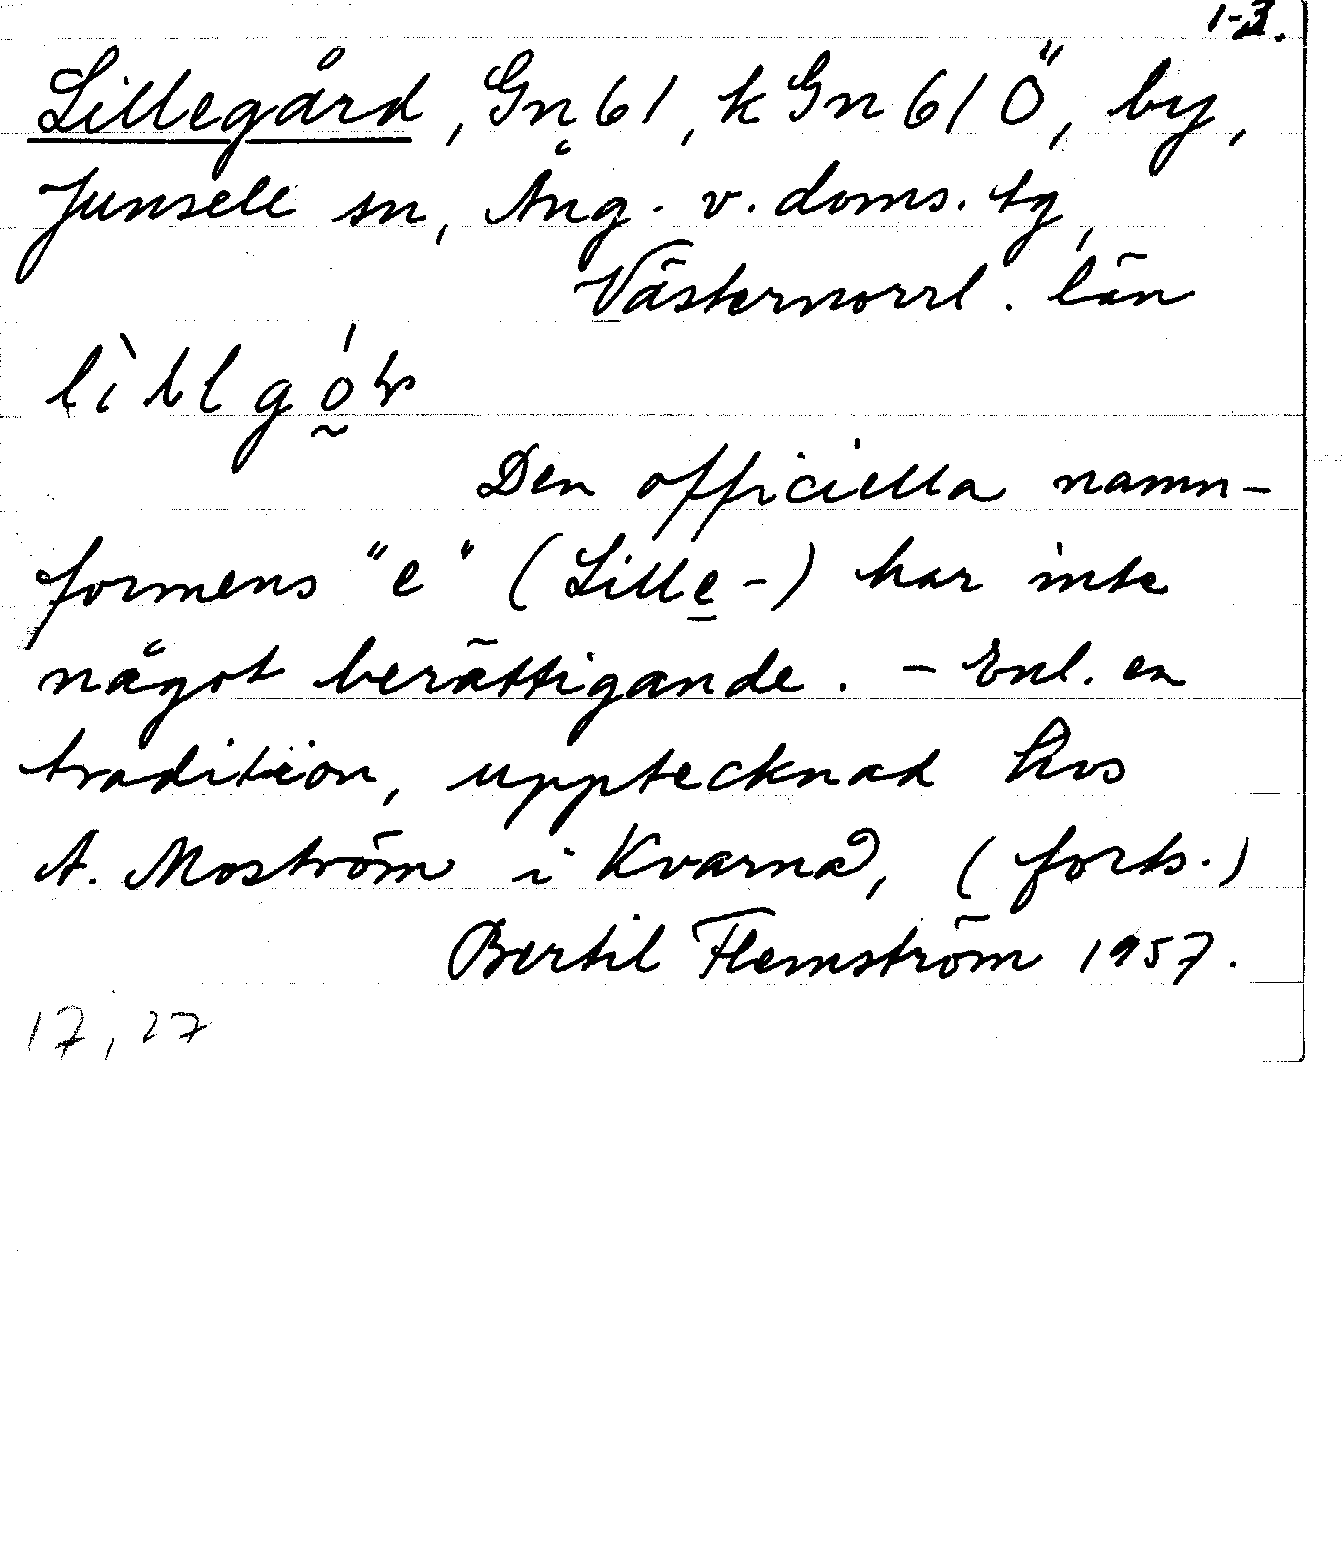 1-3.
Lillegård, Gn 61, k Gn 61 Ö, by,
Junsele sn, Ång. v. doms. tg,
Västernorrl. län
Den officiella namn-
formens "e" (Lille-) har inte
något berättigande. - Enl. en
tradition, upptecknad hos
A. Moström i Kvarnå, (forts.)
Bertil Flemström 1957.
17, 27